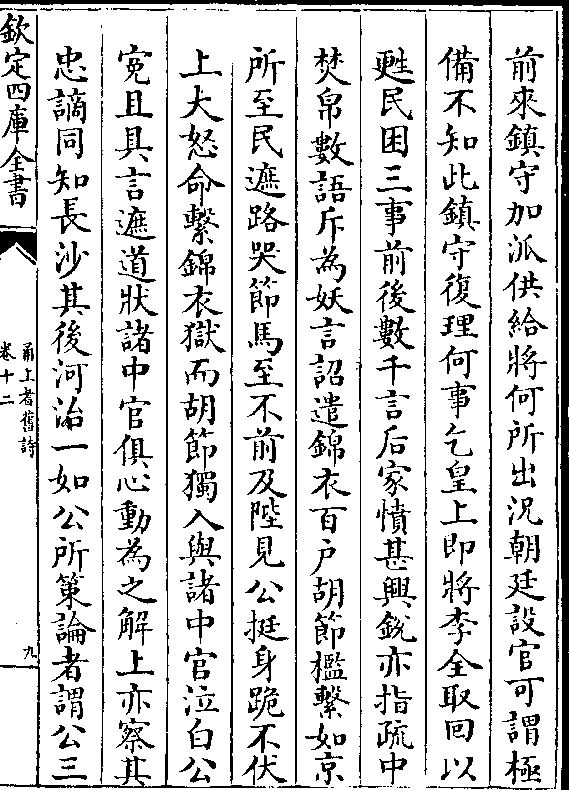 前來鎮守加派供給將何所出況朝廷設官可謂極
備不知此鎮守復理何事乞皇上即將李全取回以
甦民困三事前後數千言后家憤甚興銳亦指疏中
焚帛數語斥為妖言詔遣錦衣百户胡節檻繫如京
所至民遮路哭節馬至不前及陛見公挺身跪不伏
上大怒命繫錦衣獄而胡節獨入與諸中官泣白公
寃且具言遮道狀諸中官俱心動為之解上亦察其
忠謫同知長沙其後河治一如公所策論者謂公三
欽定四庫全書
甬上耆舊詩
卷十二
九